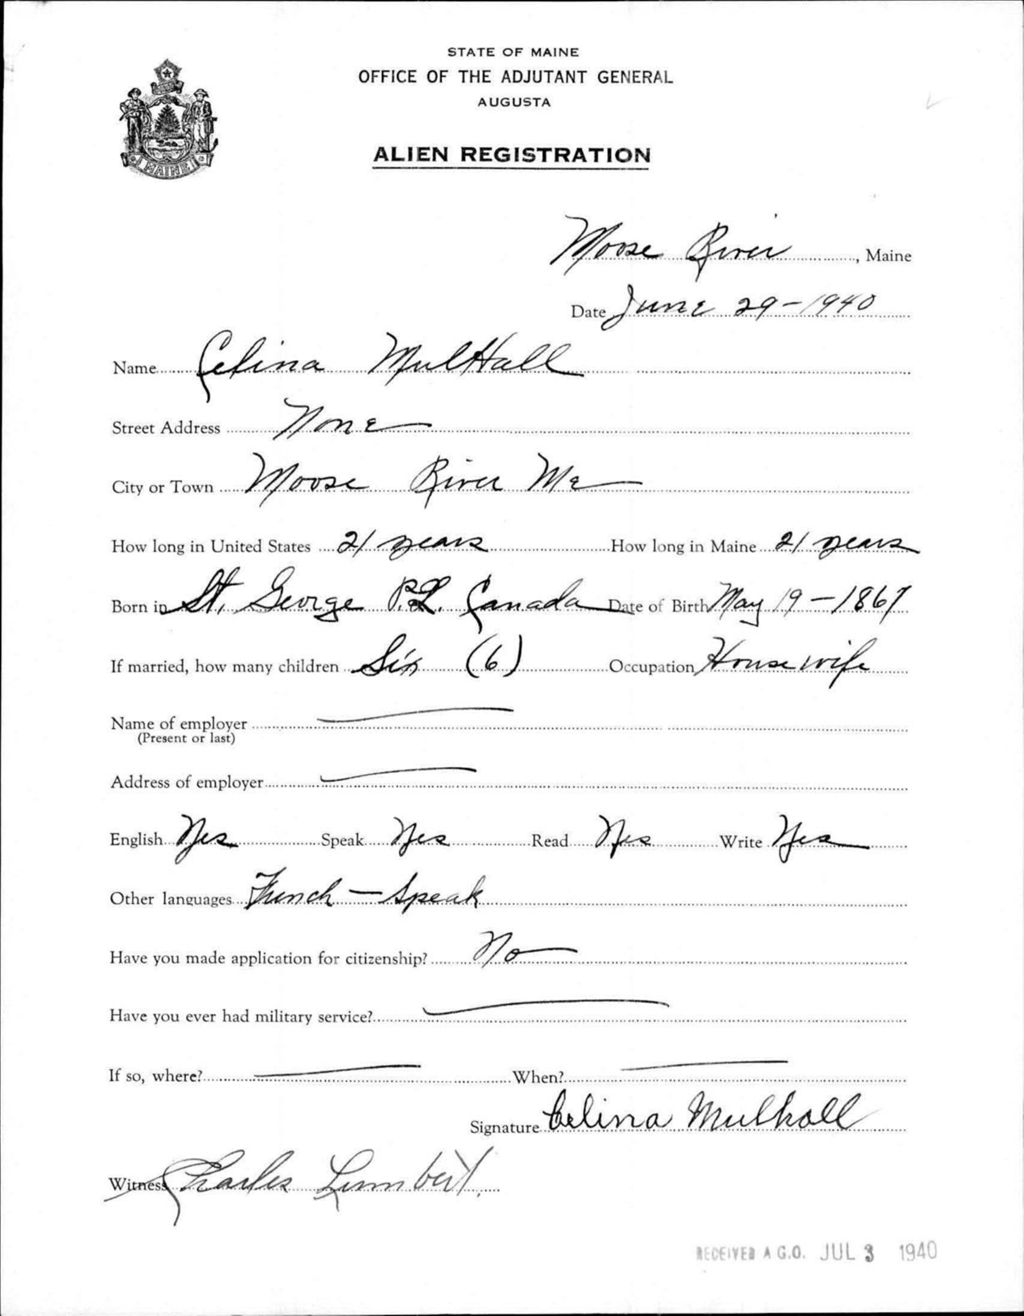 STATE OF MAINE
OFFICE OF THE ADJUTANT GENERAL
AUGUSTA
ALIEN REGISTRATION
MAINE
Moose River, Maine
Date June 29-1940
Name Celina MulHall
Street Address None
City or Town Moose River Me
How long in United States 21 years How long in Maine 21 years
Born in St. George P.Q. Canada Date of Birth May 19-1867
If married, how many children Six (6) Occupation Housewife
Name of employer
(Present or last)
Address of employer
English Yes Speak Yes Read Yes Write Yes
Other languages French - Speak
Have you made application for citizenship? No
Have you ever had military service?
If so, where? When?
Signature Celina Mulhall
Witness Charles Lumbert.
RECEIVED A.G.O. JUL 3 1940